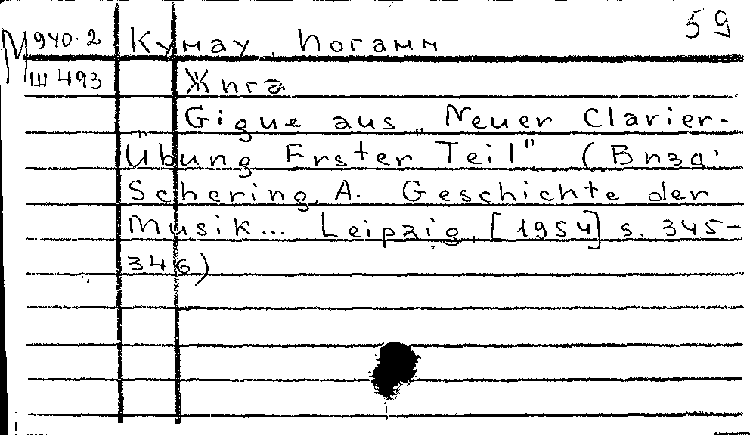 59
М 940.2 Кунау, Иоганн
Ш 493 Жига
Gigue aus „Neuer Clavier-
Übung Erster Teil" (В изд:
Schering, A. Geschichte der
Musik... Leipzig, [1954] s. 345-
346)